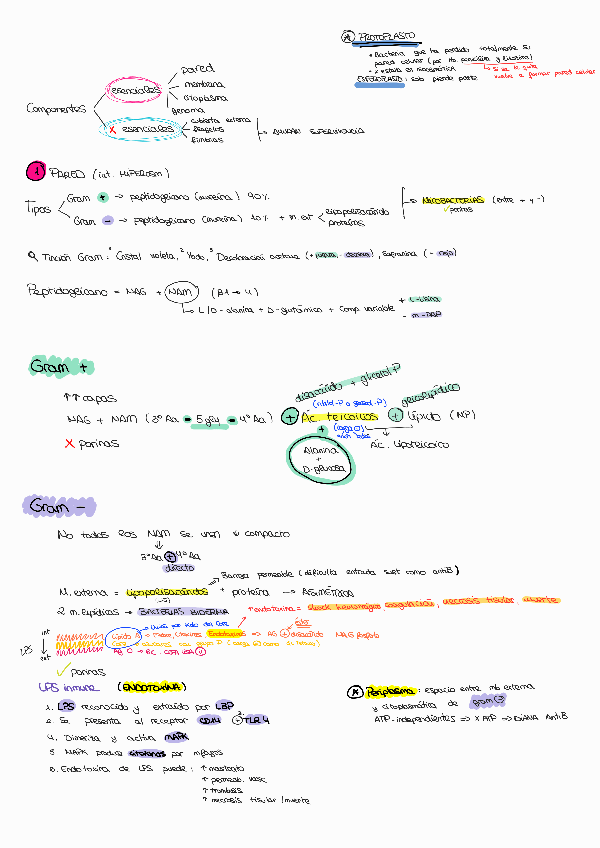 * PROTOPLASTO
• Bacteria que ha perdido totalmente su
pared celular (por tto. penicilina y lisozima)
• x estalla es hiperosmótica → si se le quita vuelve a formar pared celular
ESFEROPLASTO: solo pierde parte
Componentes
esenciales
pared
membrana
citoplasma
genoma
X esenciales
cubierta externa
flagelos
fimbrias
→ AYUDAN SUPERVIVENCIA
1 PARED (int. HIPEROSM)
Tipos
Gram + → peptidoglicano (mureína) 90%
Gram - → peptidoglicano (mureína) 10% + m. ext < lipopolisacárido proteínas
→ MICOBACTERIAS (entre + y -)
✓ porinas
Tinción Gram: ¹ Cristal violeta, ² Yodo, ³ Decoloración acetona, Safranina (- roja)
Peptidoglicano = NAG + NAM (β1→4)
↳ L/D-alanina + D-glutámico + comp. variable
+ L-lisina
- m-DAP
Gram +
↑↑ capas
NAG + NAM (3º Aa - 5 gly - 4º Aa) + Ác. teicoicos + lípido (NP)
disacárido + glicerol P
glicolipídico
(ribitol-P o glicerol-P)
+
(carga ⊖)
Ác. lipoteicoico
X porinas
Alanina
+
D-glucosa
Gram -
No todos los NAM se unen ↓ compacto
3º Aa + 4º Aa
directo
Barrera permeable (dificulta entrada sust como antiB)
M. externa = lipopolisacárido + proteína → ASIMÉTRICA
2 m. lipídicas → BARRERAS
• endotoxina = shock hemorrágico coagulación, necrosis tisular, muerte
LPS
int
ext
Lípido A
Endotoxina ⇒ AG + disacárido NAG fosfato
éster
Core
AG O
✓ porinas
LPS inmune (ENDOTOXINA)
1. LPS reconocido y extraído por LBP
2. Se presenta al receptor CD14 + TLR4
4. Dimeriza y activa MAPK
5. MAPK produce citokinas por mfagos
6. Endotoxina de LPS puede: ↑ mastocito
↑ permeab. vasc.
↑ trombosis
↑ necrosis tisular / muerte
* Periplasma: espacio entre mb externa
y citoplasmática de gram ⊖
ATP-independientes ⇒ X ATP ⇒ DIANA AntiB